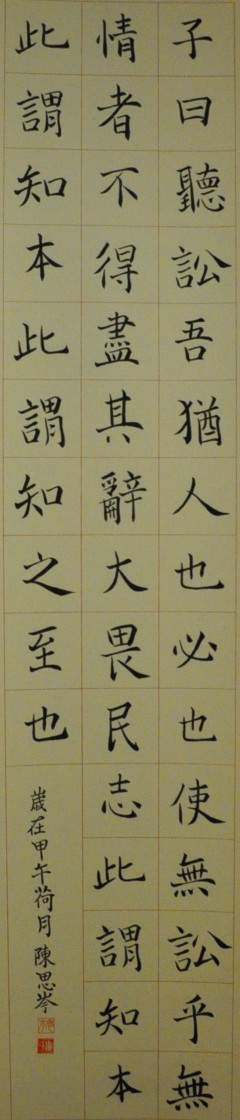 子曰聽訟吾猶人也必也使無訟乎無
情者不得盡其辭大畏民志此謂知本
此謂知本此謂知之至也
歲在甲午荷月陳思岑